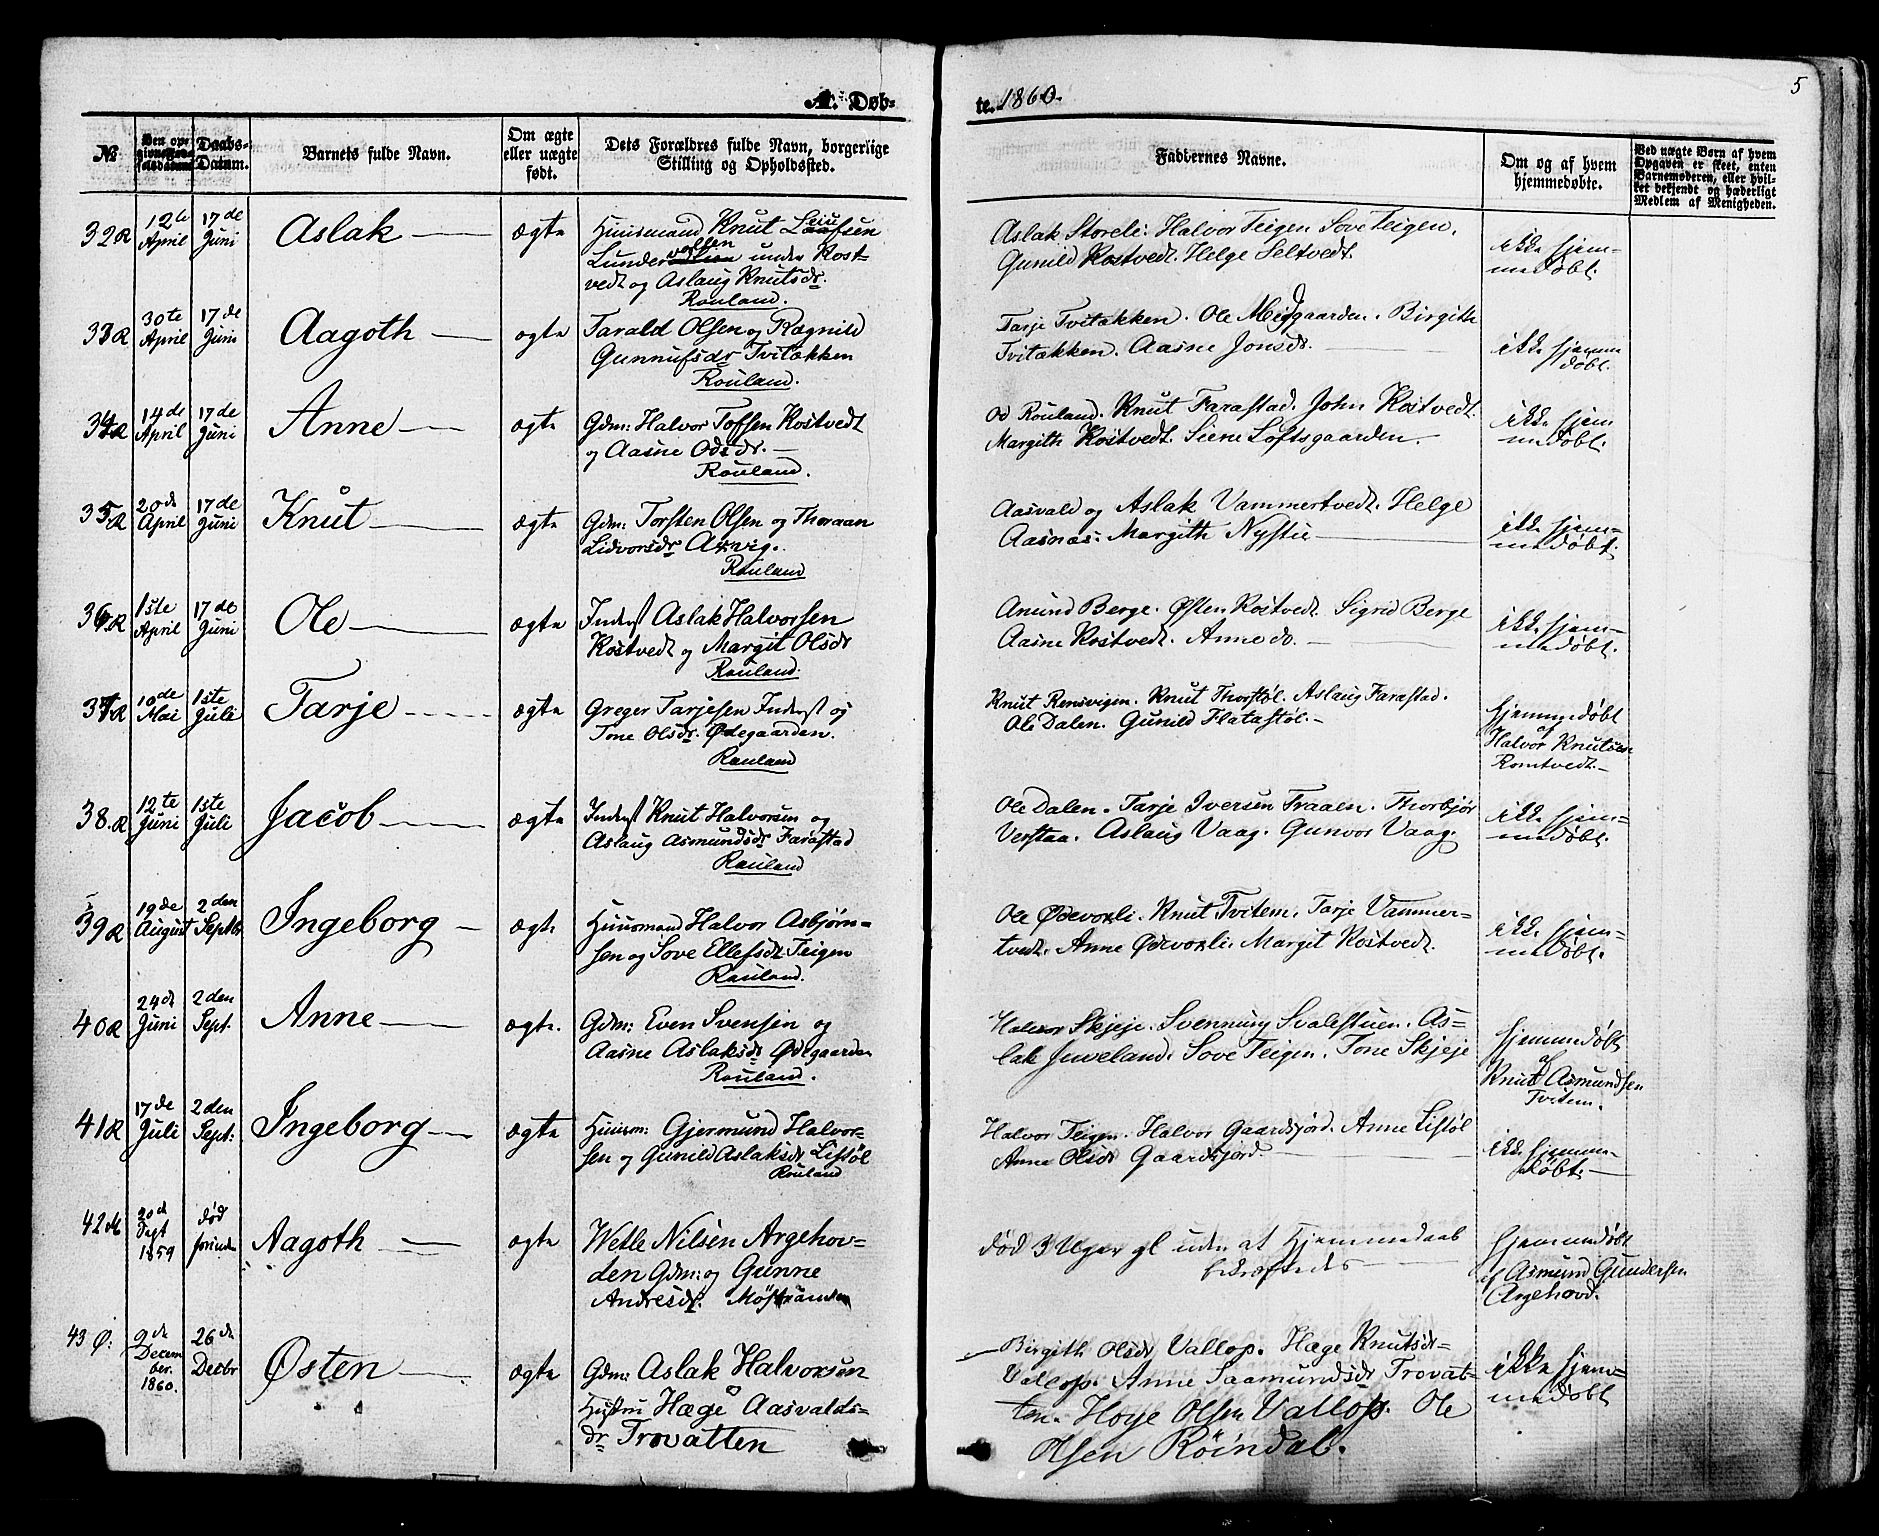 A. Døb-
te. 1860.
5
№
Den op-
givne Fød-
selsdatum.
Daabs-
Datum.
Barnets fulde Navn.
Om ægte
eller uægte
født.
Dets Forældres fulde Navn, borgerlige
Stilling og Opholdssted.
Faddernes Navne.
Om og af hvem
hjemmedøbte.
Ved uægte Børn af hvem
Opgaven er skeet, enten
Barnemoderen, eller hvil-
ket bekjendt og hæderligt
Medlem af Menigheden.
32R
12te
April
17de
Juni
Aslak
ægte
Huusmand Knut Leifsen
Lundevollen under Kost-
vedt og Aslaug Knutsdr.
Rouland.
Aslak Storeli. Halvor Teigen Sove Teigen.
Gunild Kostvedt. Helge Seltvedt.
ikke hjem-
medøbt.
33R
30te
April
17de
Juni
Aagoth
ægte
Tarald Olsen og Ragnild
Gunnufsdr Tvitækken
Rouland.
Tarje Tvitækken. Ole Midgaarden. Birgith
Tvitækken. Aasne Jonsdr.
ikke hjemme
døbt.
34R
14de
April
17de
Juni
Anne
ægte
Gdm: Halvor Tofsen Kostvedt
og Aasne Odsdr.
Rouland.
Od Rouland. Knut Farastad. John Kostvedt.
Margith Kostvedt. Siene Loftsgaarden.
ikke hjem
medøbt.
35R
20de
April
17de
Juni
Knut
ægte
Gdm: Torsten Olsen og Thoraan
Lidvorsdr Asvig.
Rouland
Aasvald og Aslak Vammertvedt. Helge
Aasnæs. Margith Nystie
ikke hjem-
medøbt.
36R
1ste
April
17de
Juni
Ole
ægte
Inderst Aslak Halvorsen
Kostvedt og Margit Olsdr
Rouland.
Anund Berge. Østen Kostvedt. Sigrid Berge
Aasne Kostvedt. Anne do.
ikke hjem-
medøbt.
37R
10de
Mai
1ste
Juli
Tarje
ægte
Greger Tarjesen Inderst og
Tone Olsdr. Ødegaarden.
Rouland
Knut Rensvigen. Knut Thorstøl. Aslaug Farastad.
Ole Dalen. Gunild Flatastøl.
hjemmedøbt
af
Halvor Knutsen
Romtvedt.
38.R
12te
Juni
1ste
Juli
Jacob
ægte
Inderst Knut Halvorsen og
Aslaug Asmundsdr Farastad
Rauland
Ole Dalen. Tarje Iversen Traaen. Thorbjør
Verstaa. Aslaug Vaag. Gunvor Vaag.
ikke hjem-
medøbt.
39R
19de
August
2den
Septbr
Ingeborg
ægte
Huusmand Halvor Asbjørn-
sen og Sove Ellefsdr. Teigen
Rauland.
Ole Ødevosli. Knut Tvitem. Tarje Vammer-
tvedt. Anne Ødevosli. Margit Kostvedt.
ikke hjem-
medøbt.
40R
24de
Juni
2den
Sept.
Anne
ægte.
Gdm: Even Svensen og
Aasne Aslaksdr Ødegaarden
Rouland.
Halvor Skjeje. Svennung Svalestuen. As-
lak Juveland. Sove Teigen. Tone Skjeje
hjemmedøbt
af
Knut Asmundsen
Tvitem.
41R
17de
Juli
2den
Sept:
Ingeborg
ægte
Huusm: Gjermund Halvor-
sen og Gunild Aslaksdr Listøl
Rouland
Halvor Teigen. Halvor Gaardsjord. Anne Listøl
Anne Olsdr Gaardsjord
ikke hjemme-
døbt.
42M
20de
Sept
1859
død
forinden
Aagoth
ægte
Wetle Nilsen Argehov-
den Gdm: og Gunne
Andresdr. Møstranden
død 3 Uger gl uden at Hjemmedaab
bekræftedes
hjemmedøbt
af Asmund Gundersen
Argehovd.
43 Ø:
9de
Decem
ber.
1860.
26de
Decbr
Østen
ægte
Gdm: Aslak Halvorsen
Hustru Hæge Aasvalds-
dr Trovatten
Birgith Olsdr Vallop. Hæge Knutsdr
Vallop. Anne Saamundsdr Trovat-
ten. Hoye Olsen Vallop. Ole
Olsen Röindal.
ikke hjem-
medøbt